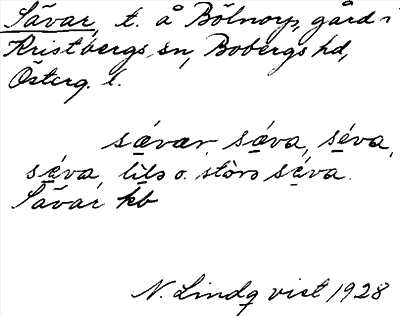 Sävar, t. å Bölnorp, gård i
Kristbergs sn, Bobergs hd,
Österg. l.
sävar, säva, séva,
séva, lils o. stórs séva.
Sävar kb
N. Lindqvist 1928